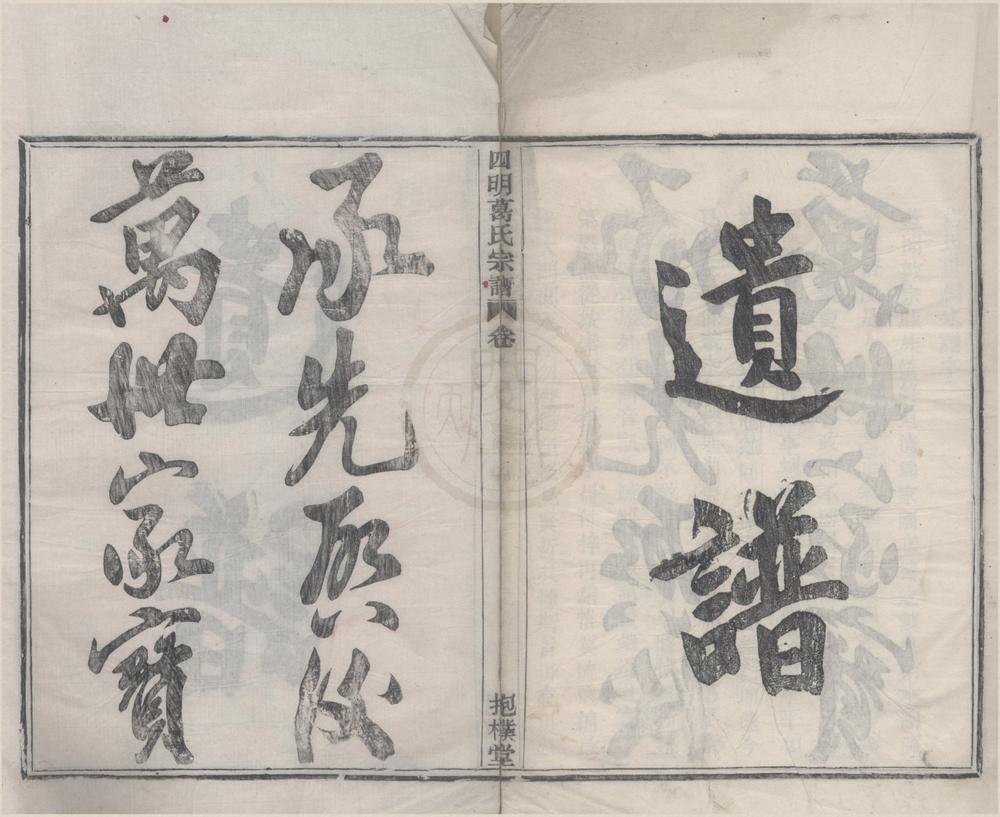 遺譜
四明葛氏宗譜 卷
抱樸堂
承先啟後
萬世家寶